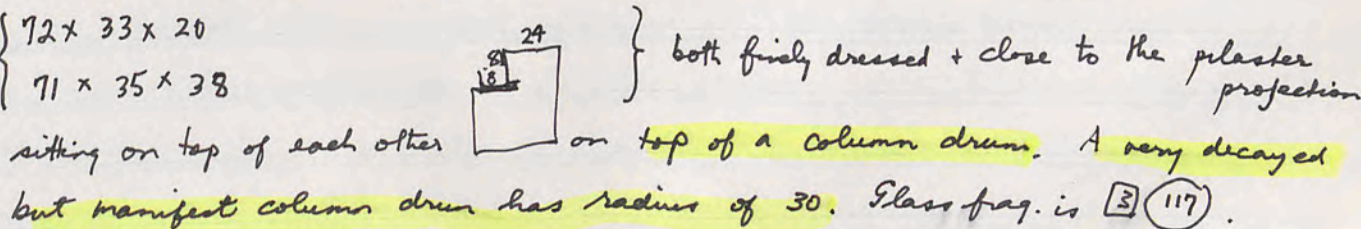 72 x 33 x 20
71 x 35 x 38
24
8
8
} both finely dressed + close to the pilaster
projection
sitting on top of each other on top of a column drum. A very decayed
but manifest column drum has radius of 30. Glass frag. is 3 117.